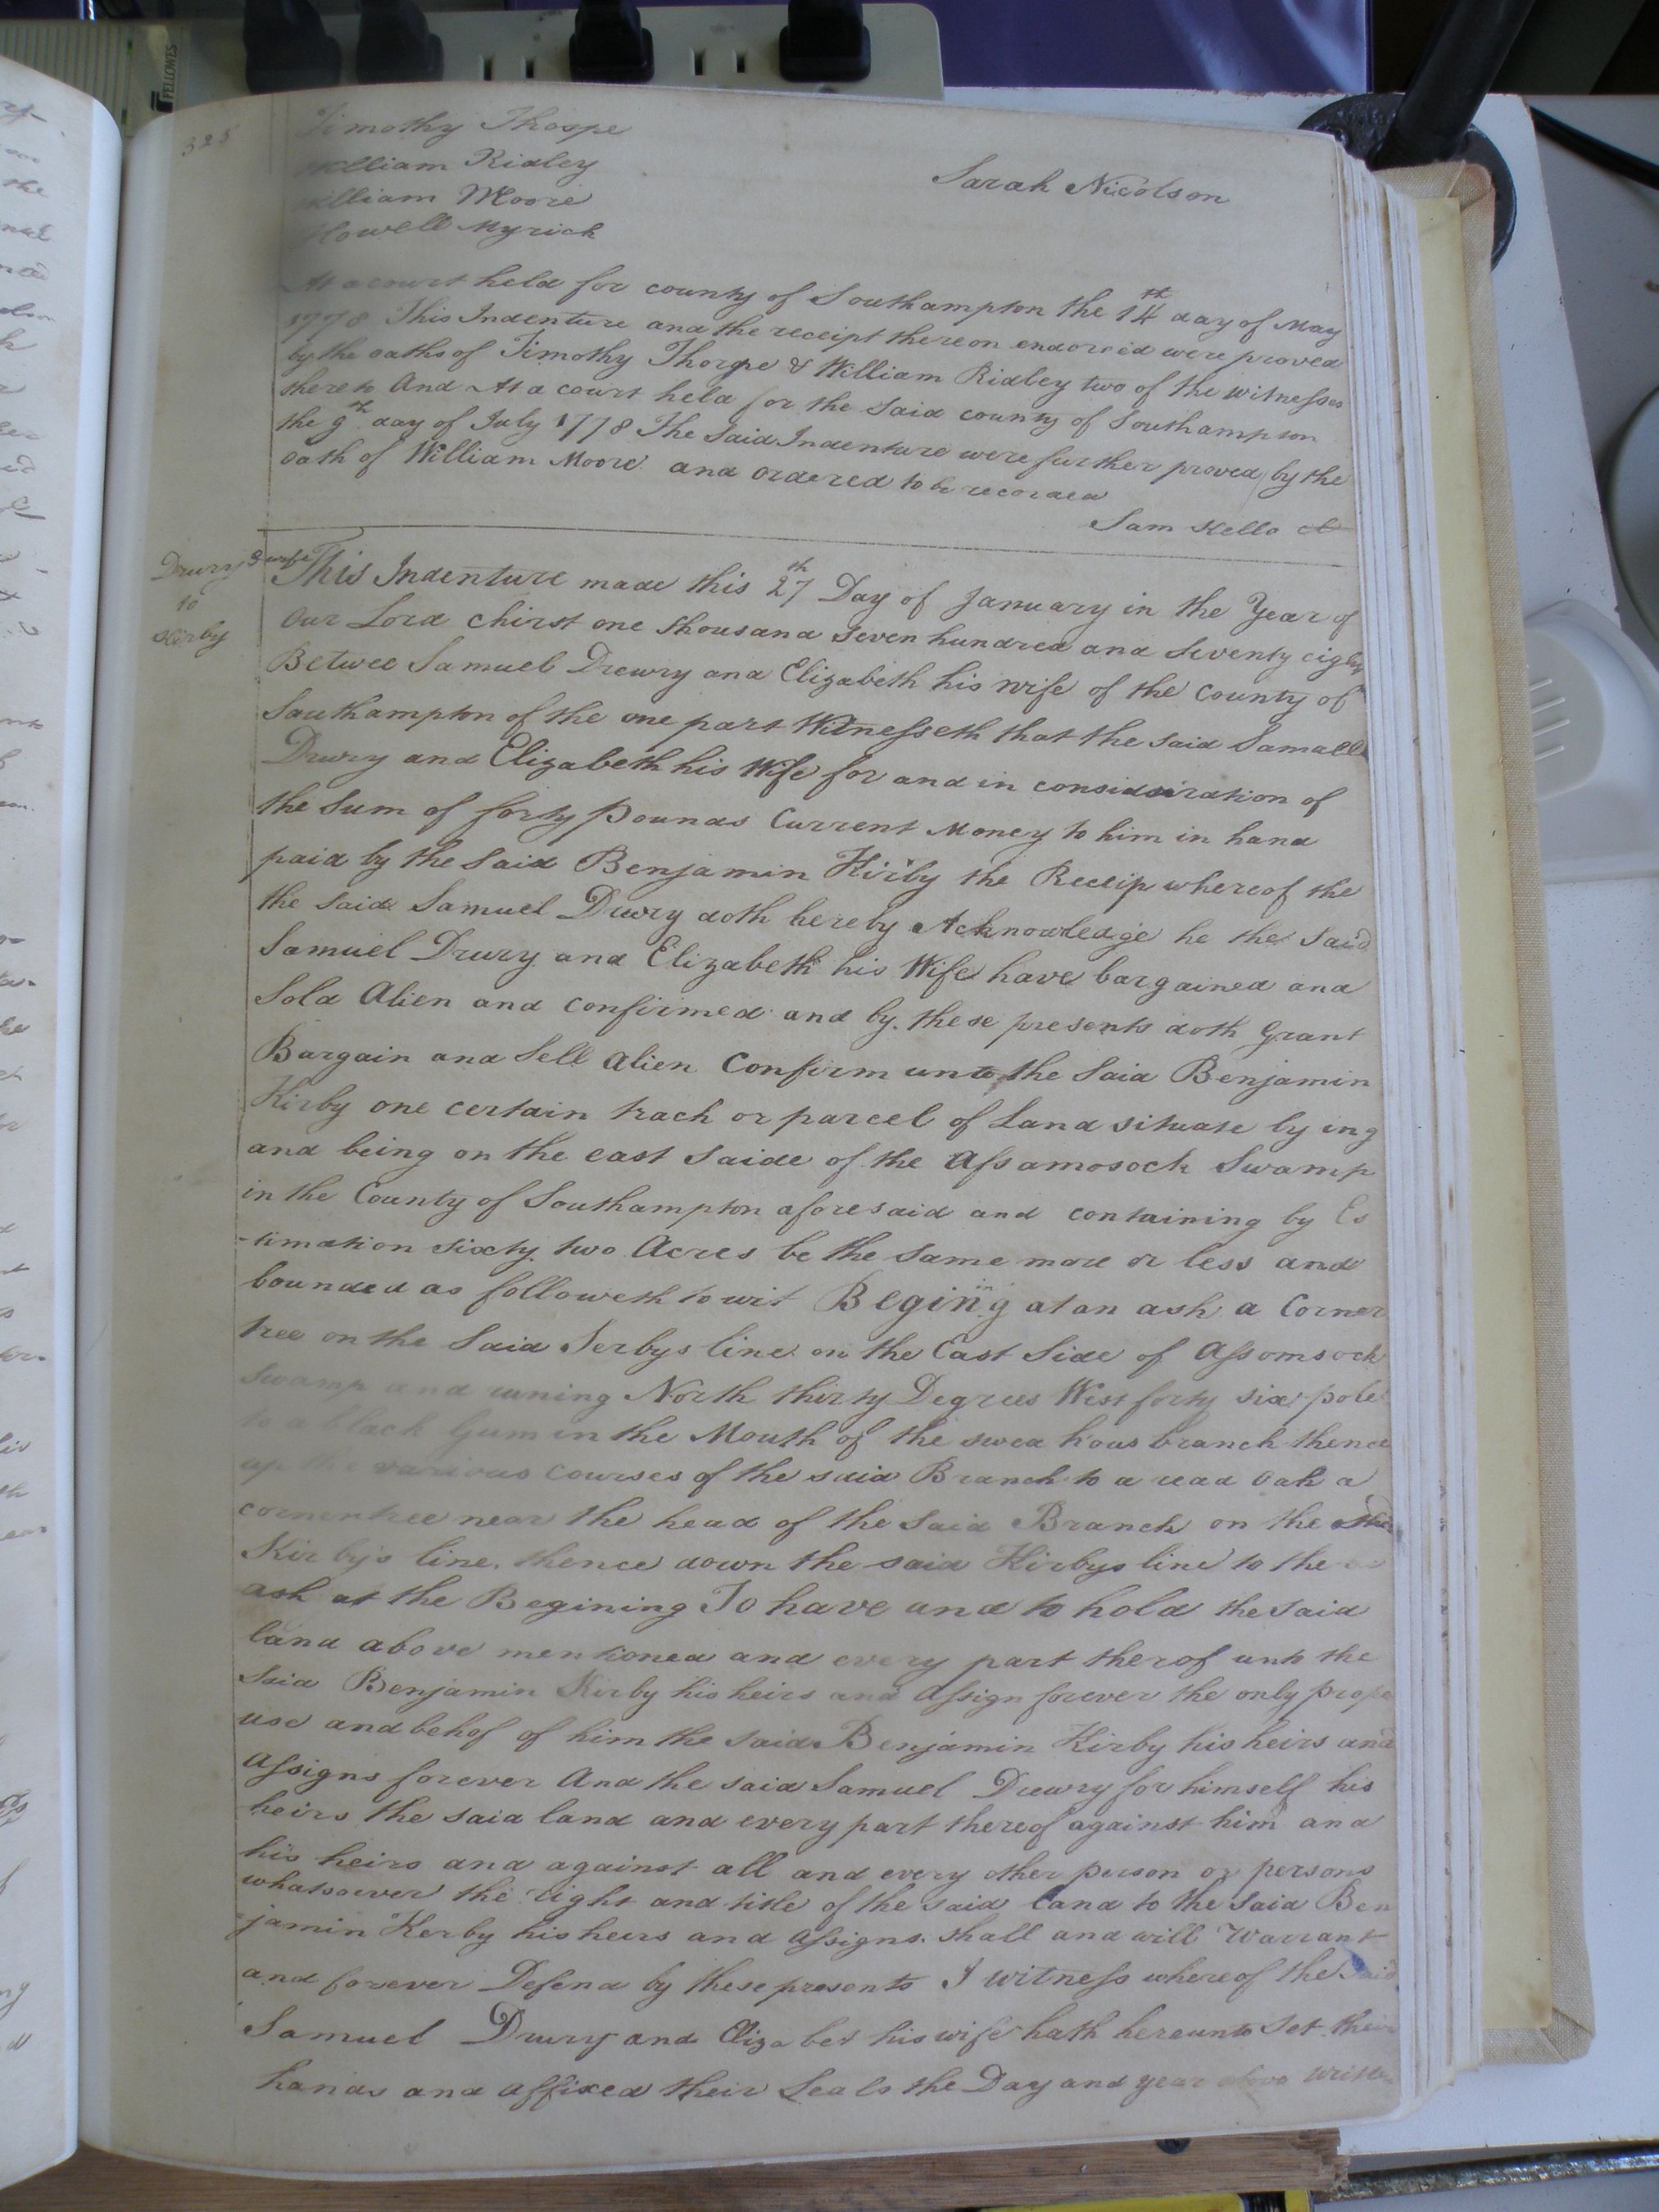 FELLOWES
325
Timothy Thorpe
William Ridley
William Moore
Howell Myrick
Sarah Nicolson
At a court held for county of Southampton the 14th day of May
1778 This Indenture and the receipt thereon endorsed were proved
by the oaths of Timothy Thorpe & William Ridley two of the witnesses
thereto And At a court held for the said county of Southampton
the 9th day of July 1778 The Said Indenture were further proved by the
oath of William Moore and ordered to be recorded
Sam Kello
Drury & wife
to
Kirby
This Indenture made this 27th Day of January in the Year of
Our Lord Chirst one thousand seven hundred and Seventy eight
Betwee Samuel Drewry and Elizabeth his wife of the County of
Southampton of the one part Witnesseth that the said Samuell
Drury and Elizabeth his Wife for and in considiration of
the Sum of forty Pounds Current Money to him in hand
paid by the Said Benjamin Kirby the Receip whereof the
the said Samuel Drury doth hereby Acknowledge he the Said
Samuel Drury and Elizabeth his Wife have bargained and
Sold Alien and confirmed and by these presents doth Grant
Bargain and Sell Alien Confirm unto the Said Benjamin
Kirby one certain track or parcel of Land situate lying
and being on the east Saide of the Assamosock Swamp
in the County of Southampton aforesaid and containing by Es
-timation sixty two Acres be the same more or less and
bounded as followeth to wit Begining at an ash a Corner
tree on the Said Serbys line on the East Side of Assomsock
Swamp and runing North thirty Degrees West forty six pole
to a black Gum in the Mouth of the swea hous branch thence
up the various courses of the said Branch to a read oak a
corner tree near the head of the Said Branch on the
Kirbys line. thence down the said Kirbys line to the
ash at the Begining To have and to hold the Said
land above mentioned and every part therof unto the
Said Benjamin Kirby his heirs and Assign forever the only prope
use and behof of him the said Benjamin Kirby his heirs and
Assigns forever And the said Samuel Drewry for himself his
heirs the said land and every part thereof against him and
his heirs and against all and every other person or persons
whatsoever the right and title of the said land to the Said Ben
jamin Kerby his heirs and Assigns. Shall and will Warrant
and forever Defend by these presents I witness whereof the Said
Samuel Drury and Elizabet his wife hath hereunto Set their
hands and affixed their Seals the Day and year above written